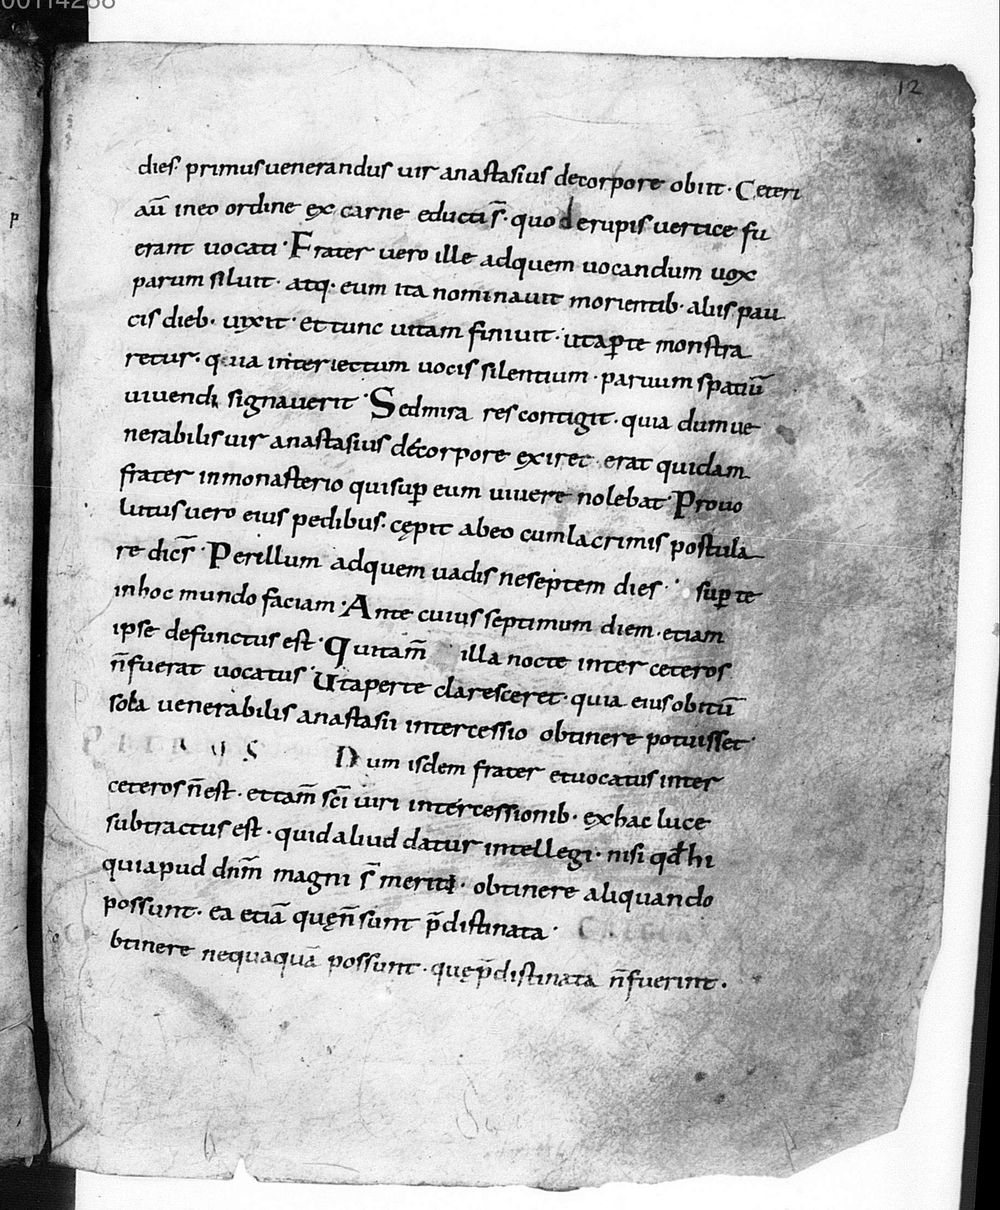 12
dies· primus uenerandus uir anastasius decorpore obiit· Ceteri
aū ineo ordine ex carne educti s̄· quo derupis uertice fu
erant uocati· Frater uero ille adquem uocandum uox
parum siluit· atq· eum ita nominauit morientib· aliis pau
cis dieb· uixit· et tunc uitam finiuit· utaꝑte monstra
retur· quia interiectum uocis silentium· paruum spatiū
uiuendi signauerit· Sedmira res contigit· quia dumue
nerabilis uir anastasius decorpore exiret· erat quidam
frater inmonasterio quisuꝑ eum uiuere nolebat· Prouo
lutus uero eius pedibus· cępit abeo cumlacrimis postula
re dicēs· Perillum adquem uadis neseptem dies· suꝑ te
inhoc mundo faciam· Ante cuius septimum diem· etiam
ipse defunctus est· Qui tam̄ illa nocte inter ceteros
n̄fuerat uocatus· Utaperte claresceret· quia eius obitū
sola uenerabilis anastasii intercessio obtinere potuisset·
PETRUS Dum isdem frater etuocatus inter
ceteros n̄est· ettam̄ sc̄i uiri intercessionib· exhac luce
subtractus est· quid aliud datur intellegi· nisi qđ hi
quiapud dn̄m magni s̄ meriti· obtinere aliquando
possunt· ea etiā quęn̄ sunt p̄distinata·
btinere nequaquā possunt· quęp̄distinata n̄fuerint·